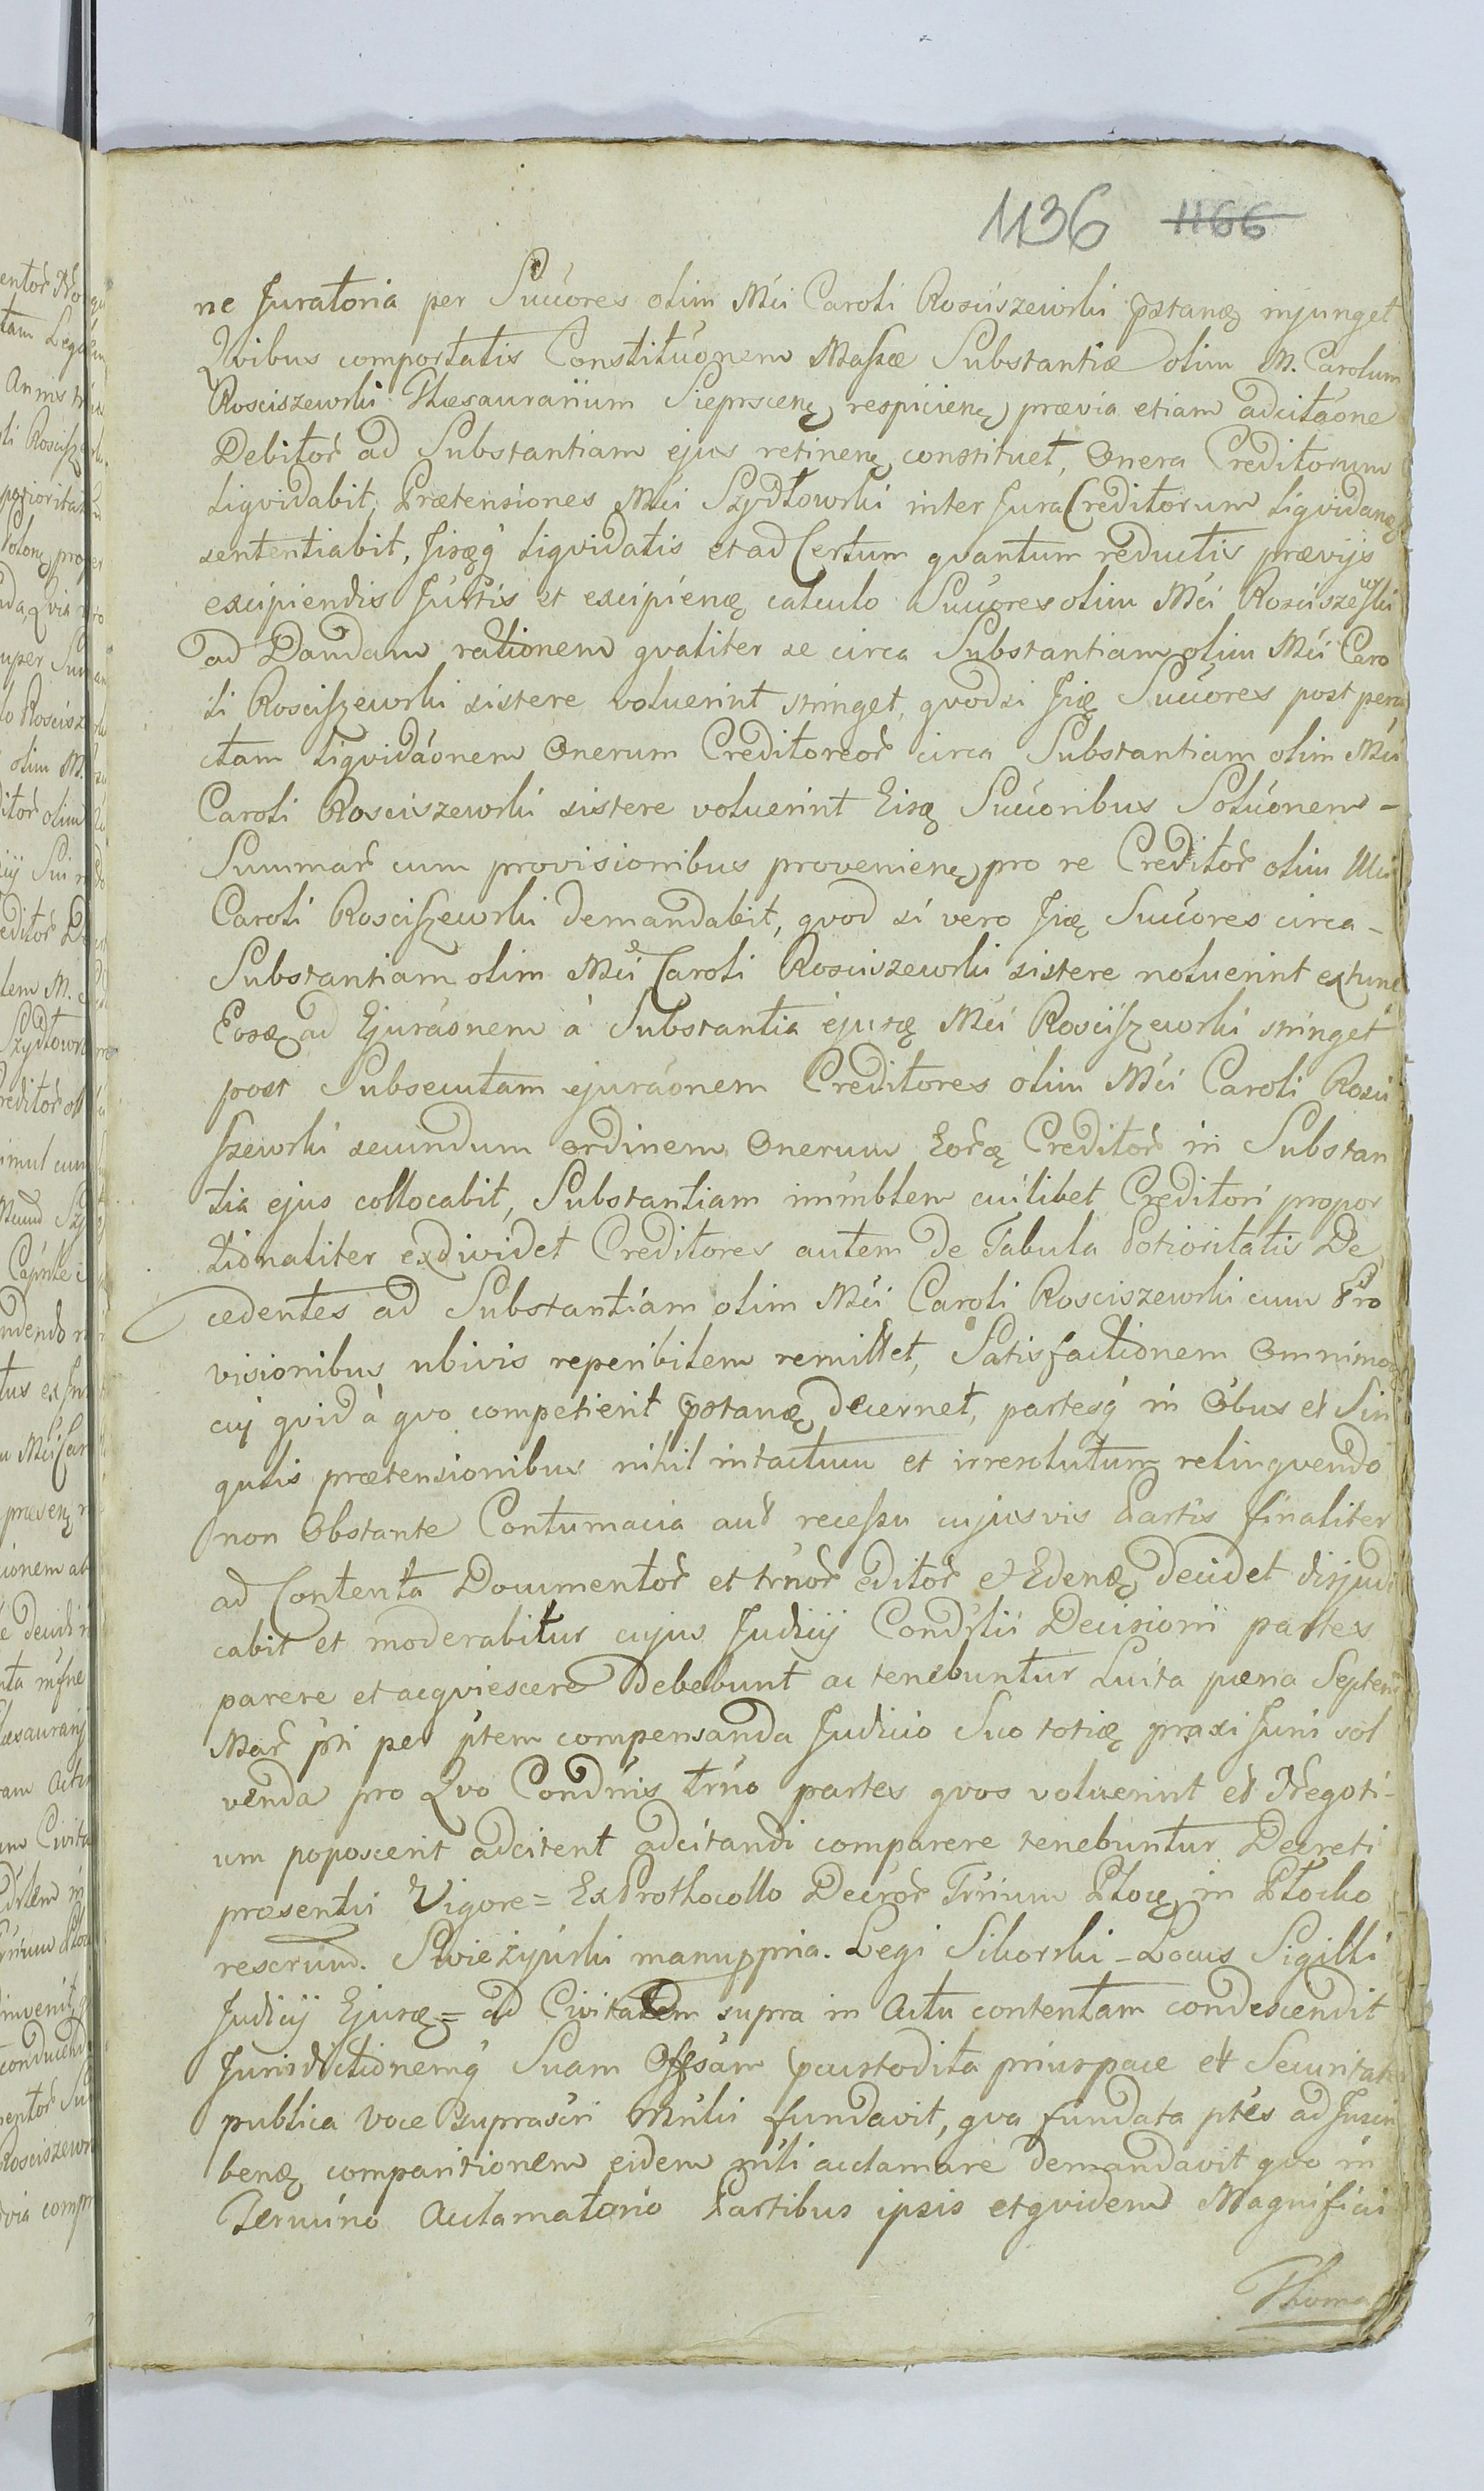 1136 1166
ne Juratoria per Succores olim Mci Caroli Rosciszewski pstanę injunget
Qvibus comportatis Constitucnem Massæ Substantiæ olim M. Carolum
Rosciszewski Thesaurarium Sieprscenę respicienę prævia etiam adcitaone
Debitor ad Substantiam ejus retinenę constituet, Onera Creditorum
liqvidabit, Prætensiones Mci Szydłowski inter Jura Creditorum liqvidanę
sententiabit, Jisęq liqvidatis et ad Certum qvantum reductis prævijs
excipiendis Juris et excipienę calculo Succores olim Mci Rosciszewski
ad Dandam rationem qvaliter se circa Substantiam olim Mci Caro
li Roscissewski sistere voluerint stringet, qvodsi Jię Succores post pera
ctam liqvidaonem Onerum Creditoror circa Substantiam olim Mci
Caroli Rosciszewski sistere voluerint Eisę Succoribus Solucnem -
Summar cum provisionibus provenienę pro re Creditor olim Mci
Caroli Roscissewski demandabit, qvod si vero Jię Succores circa -
Substantiam olim Mci Caroli Rosciszewski sistere noluerint extunc
Eosę ad Ejuraonem à Substantia ejusę Mci Rosciszewski stringet
post Subsecutam ejuraonem Creditores olim Mci Caroli Rosci
szewski secundum ordinem Onerum Eorę Creditor in Substan
tia ejus collocabit, Substantiam immblem cuilibet Creditori propor
tionaliter exdividet Creditores autem de Tabula Potioritatis De
cedentes ad Substantiam olim Mci Caroli Rosciszewski cum Pro
visionibus ubivis reperibilem remittet, Satisfactionem Omnimo
cuj qvid à qvo competierit pstanę decernet, partesq in Obus et Sin
gulis prætensionibus nihil intactum et irresolutum relinqvendo
non Obstante Contumacia aut recessu cujusvis Partis finaliter
ad Contenta Documentor et trnor editor et Edenę decidet disjudi
cabit et moderabitur cujus Judicij Condrlii Decisioni partes
parere et acqviescere Debebunt ac tenebuntur Luita pæna Septem
Mar pti per ptem compensanda Judicio Suo totię praxi Juni sol
venda pro Qvo Condnis trno partes qvos voluerint et Negoti-
um poposcerit adcitent adcitandi comparere tenebuntur Decreti
præsentis Vigore = Ex Prothocollo Decror Trnium Płocę in Płocko
rescrum. Swieżyński manuppria. Legi Sikorski - Locus Sigilli
Judicij Ejusę = ad Civitatem supra in Actu contentam condescendit
Jurisdictionemq Suam Offsam pcustodita prius pace et Securitate
publica voce supraścri Mnlii fundavit, qva fundata ptes ad Juscri
benę comparitionem eidem mli acclamare demandavit qvo in
Termino Acclamatorio Partibus ipsis etqvidem Magnifici
Thoma